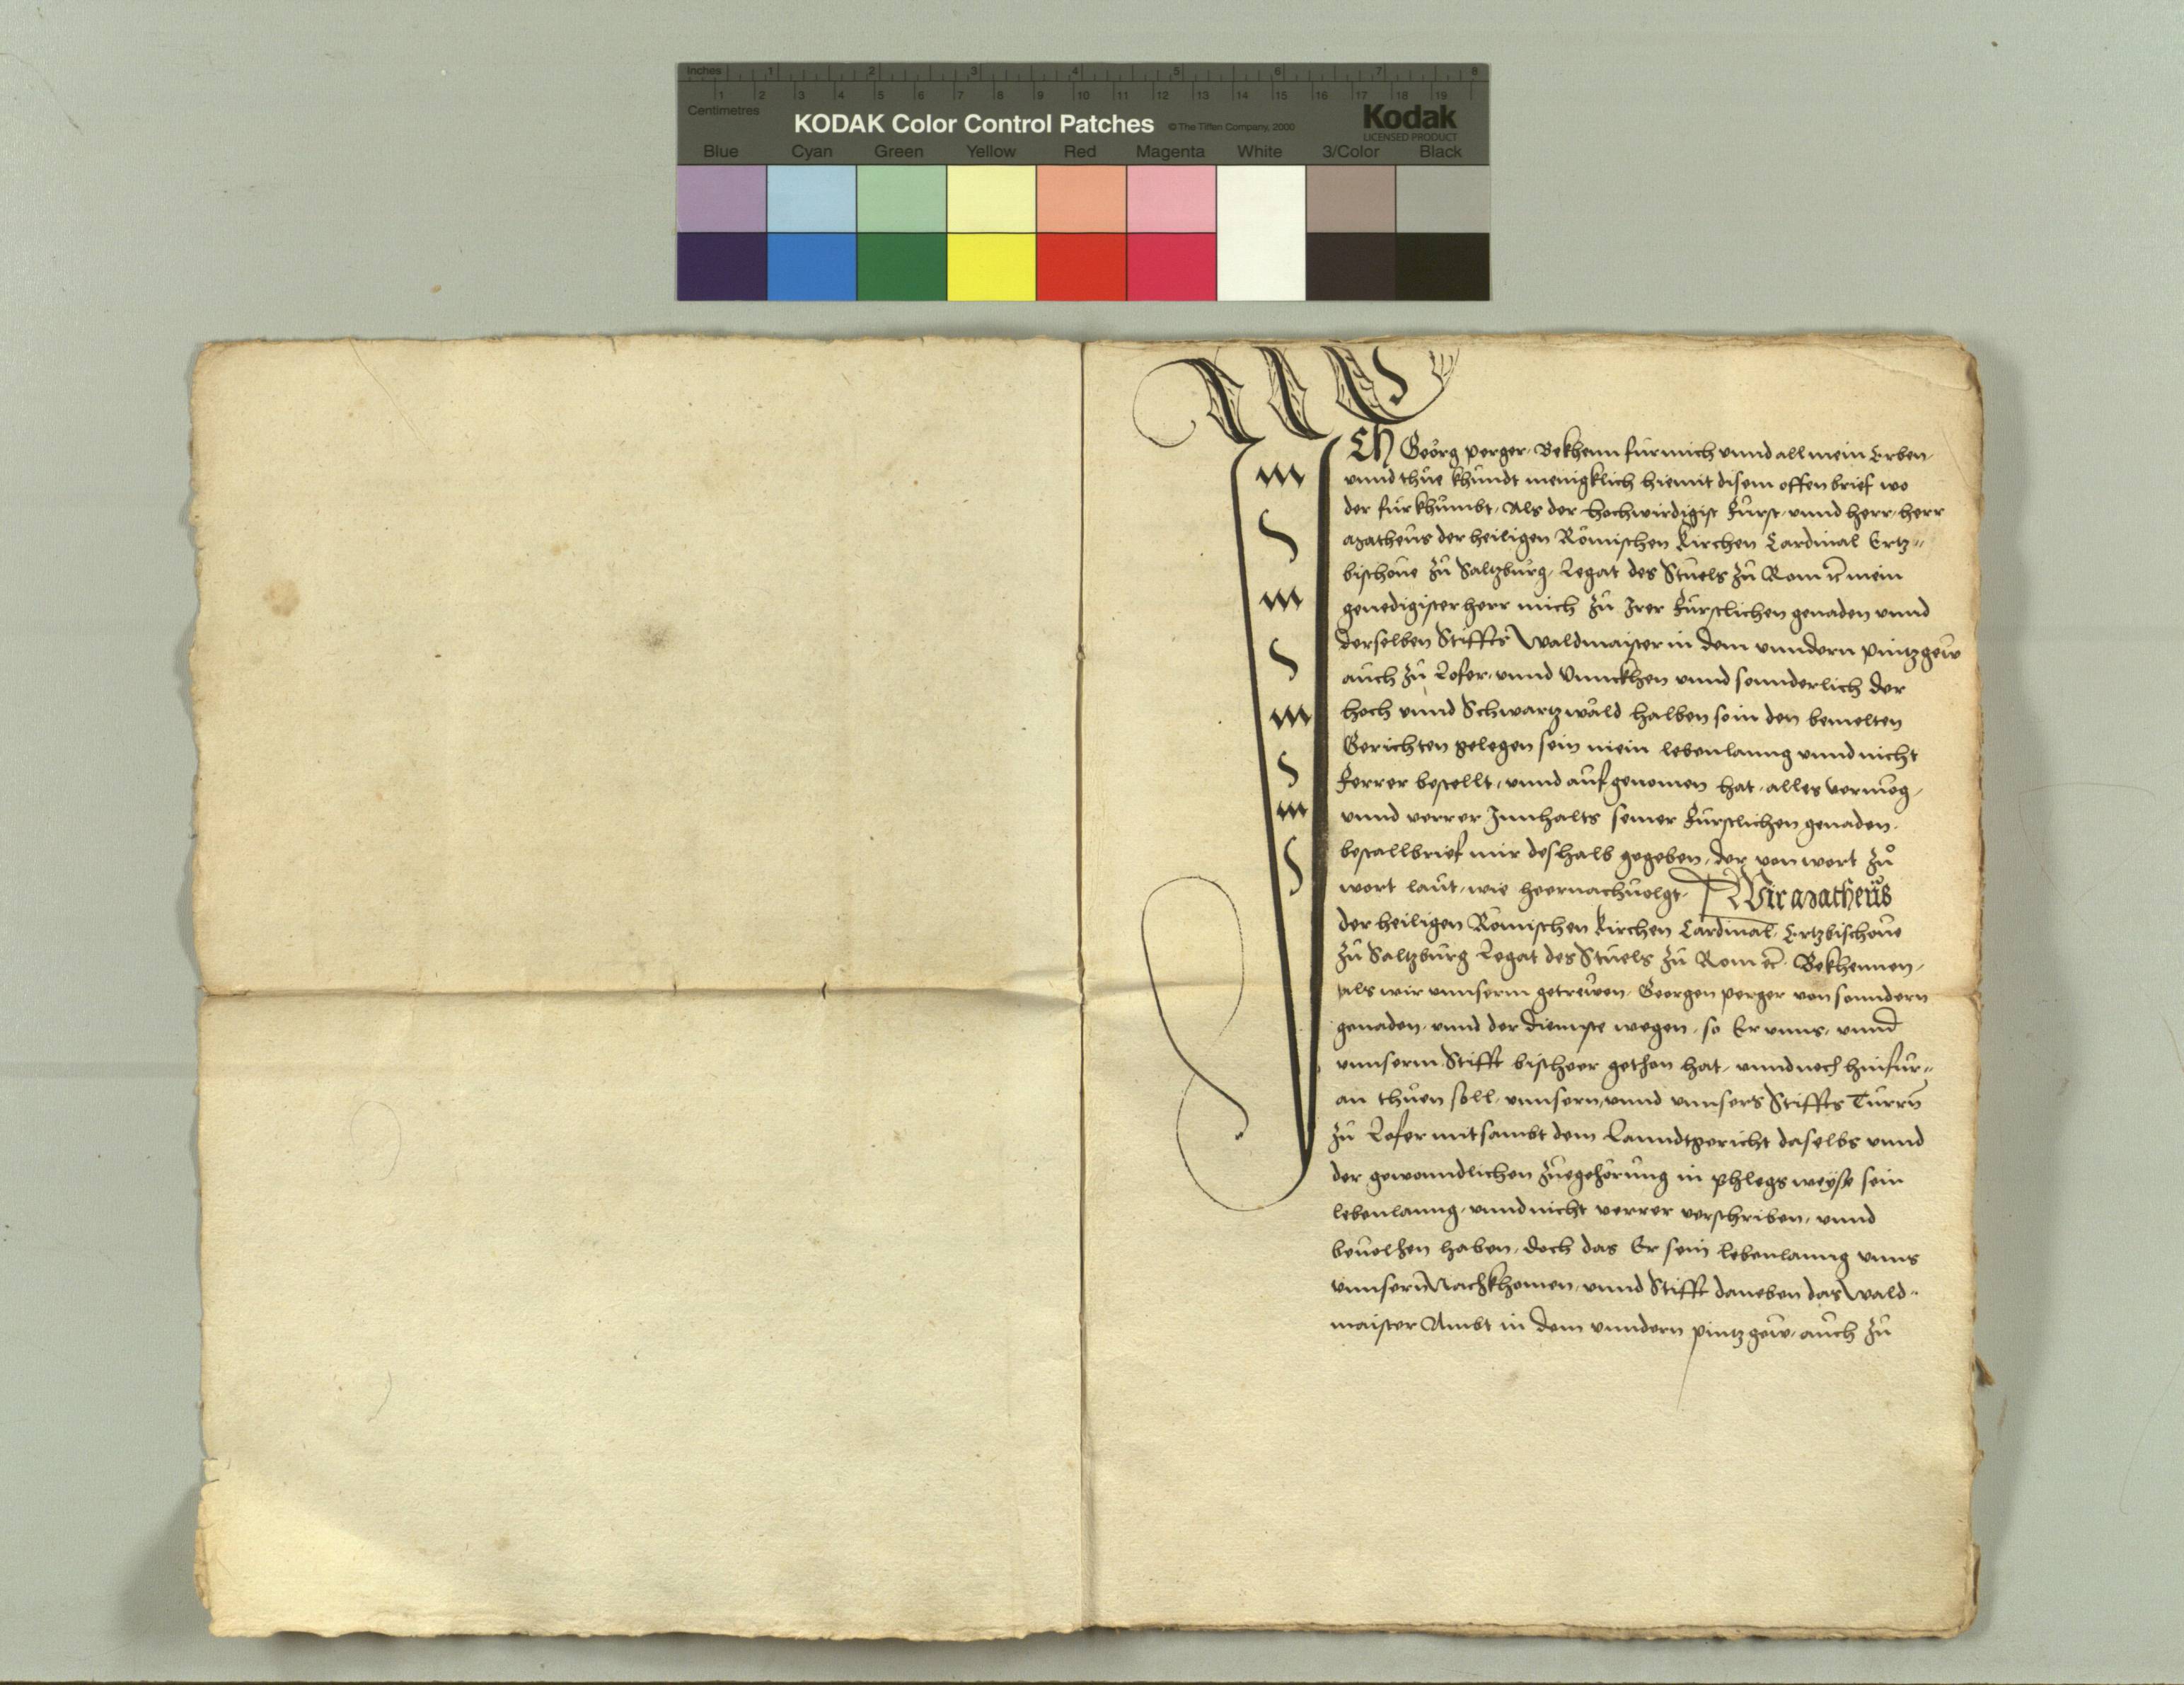 Inches 1 2 3 4 5 6 7 8
1 2 3 4 5 6 7 8 9 10 11 12 13 14 15 16 17 18 19
Centimetres
KODAK Color Control Patches © The Tiffen Company, 2000 Kodak
LICENSED PRODUCT
Blue Cyan Green Yellow Red Magenta White 3/Color Black
ICh Georg perger, Bekhenn für mich vnnd all mein Erben,
vnnd thue khundt menigklich hiemit disem offen brief wo
der fürkhumbt, Als der Hochwirdigist Fürst, vnnd herr, herr
Matheus der heiligen Römischen Kirchen Cardinal Ertz-
bischoue zu Saltzburg, Legat des Stuels zu Rom rc mein
genedigister herr mich zu Irer Fürstlichen genaden vnnd
derselben Stiffts Waldmaister in dem vnndern pintzgew
auch zu Lofer, vnnd Vnnckhen vnnd sonnderlich der
hoch vnnd Schwartzwäld halben so in den bemelten
Gerichten gelegen sein mein lebenlanng vnnd nicht
Ferrer bestellt, vnnd aufgenomen hat, alles vermög,
vnnd verrer Innhalts seiner Fürstlichen genaden
bestallbrief mir deshalb gegeben, der von wort zu
wort laut, wie hernachuolgt. Wir Matheus
der heiligen Römischen Kirchen Cardinal, Ertzbischoue
zu Saltzburg Legat des Stuels zu Rom rc. Bekhennen,
als wir vnnserm getrewen, Georgen perger von sonndern
genaden, vnnd der diennste wegen, so Er vnns, vnnd
vnnserm Stifft bischeer gethon hat, vnnd noch hinfür-
an thuen soll, vnnsern, vnnd vnnsers Stiffts Turrn
zu Lofer mitsambt dem Lanndtgericht daselbs vnnd
der gewonndlichen zuegehörung in phlegs weyse sein
lebenlanng, vnnd nicht verrer verschriben, vnnd
beuolhen haben, doch das Er sein lebenlanng vnns
vnnsern Nachkhomen, vnnd Stifft daneben das Wald-
maister Ambt in dem vnndern pintzgew, auch zu